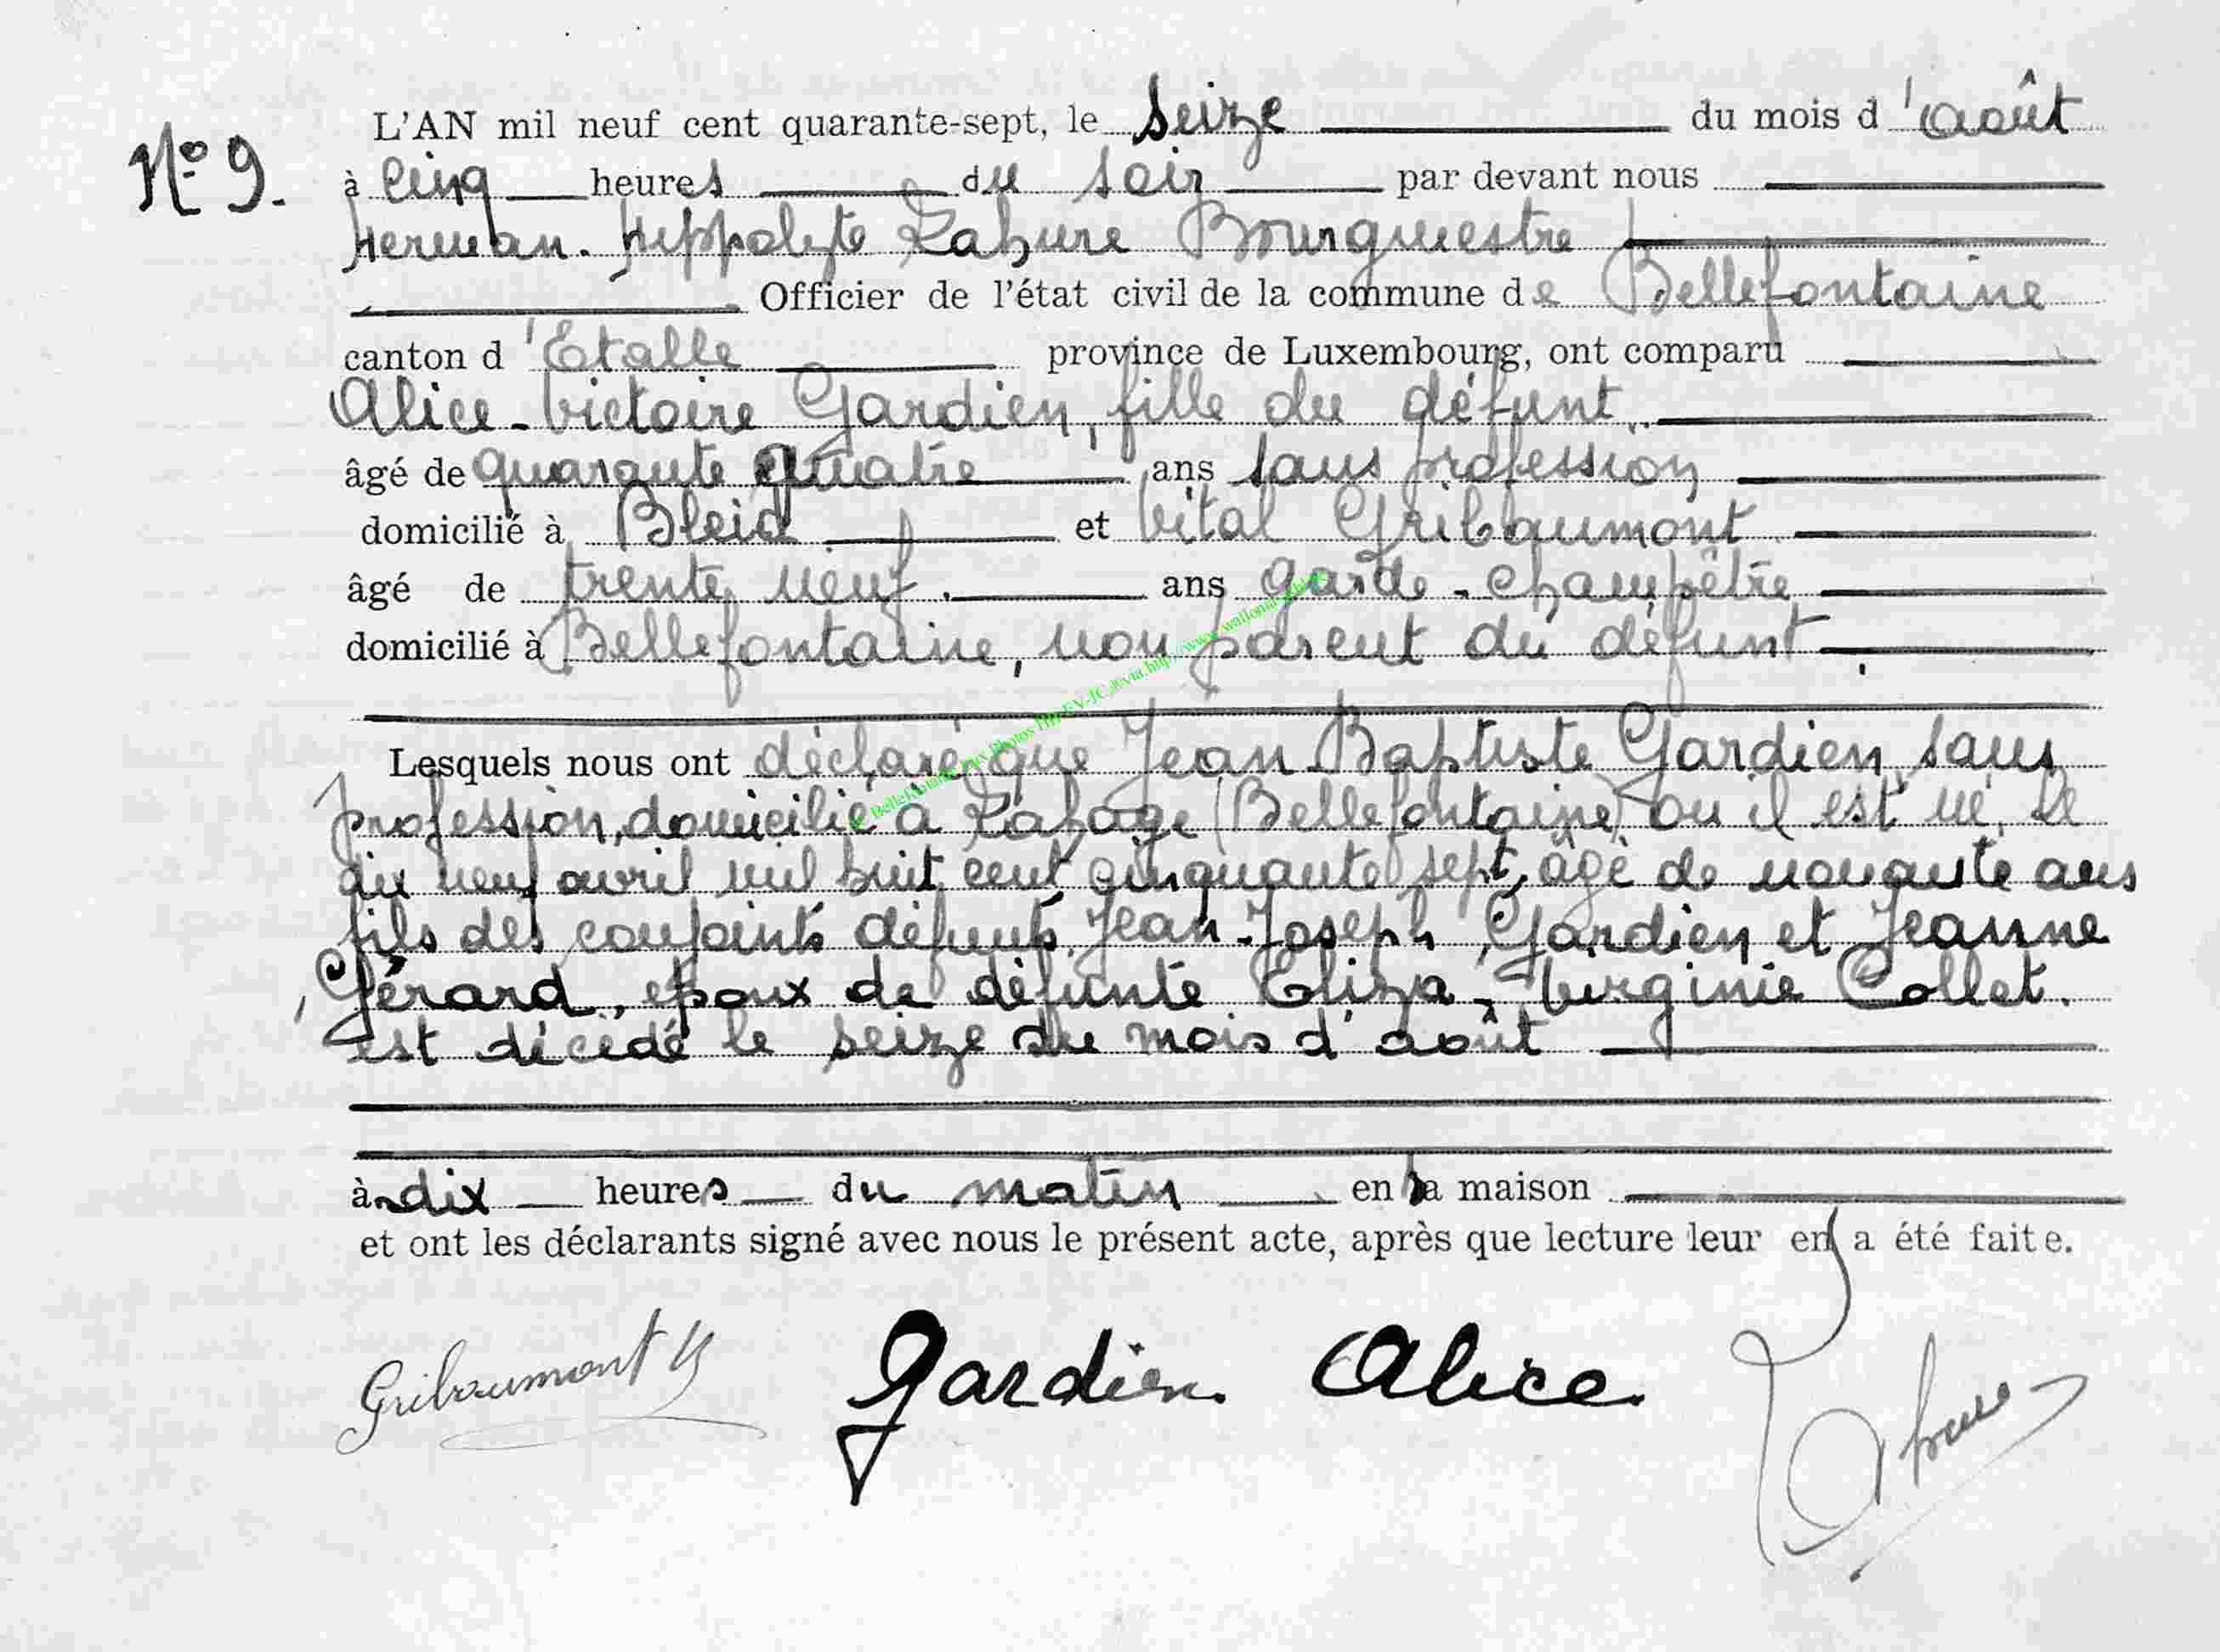 L'AN mil neuf cent quarante-sept, le seize du mois d'août
N° 9. à cinq heures du soir par devant nous
Herman-Hippolyte Lahure Bourgmestre
Officier de l'état civil de la commune de Bellefontaine
canton d'Etalle province de Luxembourg, ont comparu
Alice-Victoire Gardien, fille du défunt
âgé de quarante quatre ans sans profession
domicilié à Bleid et Vital Gribaumont
âgé de trente neuf ans garde-champêtre
domicilié à Bellefontaine, non parent du défunt
Lesquels nous ont déclaré que Jean Baptiste Gardien, sans
profession, domicilié à Lahage (Bellefontaine) ou il est né, le
dix neuf avril mil huit cent cinquante sept, âgé de nonante ans
fils des conjoints défunts Jean-Joseph Gardien et Jeanne
Gérard, époux de défunte Eliza-Virginie Collet.
est décédé le seize du mois d'août
à dix heures du matin en sa maison
et ont les déclarants signé avec nous le présent acte, après que lecture leur en a été faite.
Gribaumont V Gardien Alice Lahure